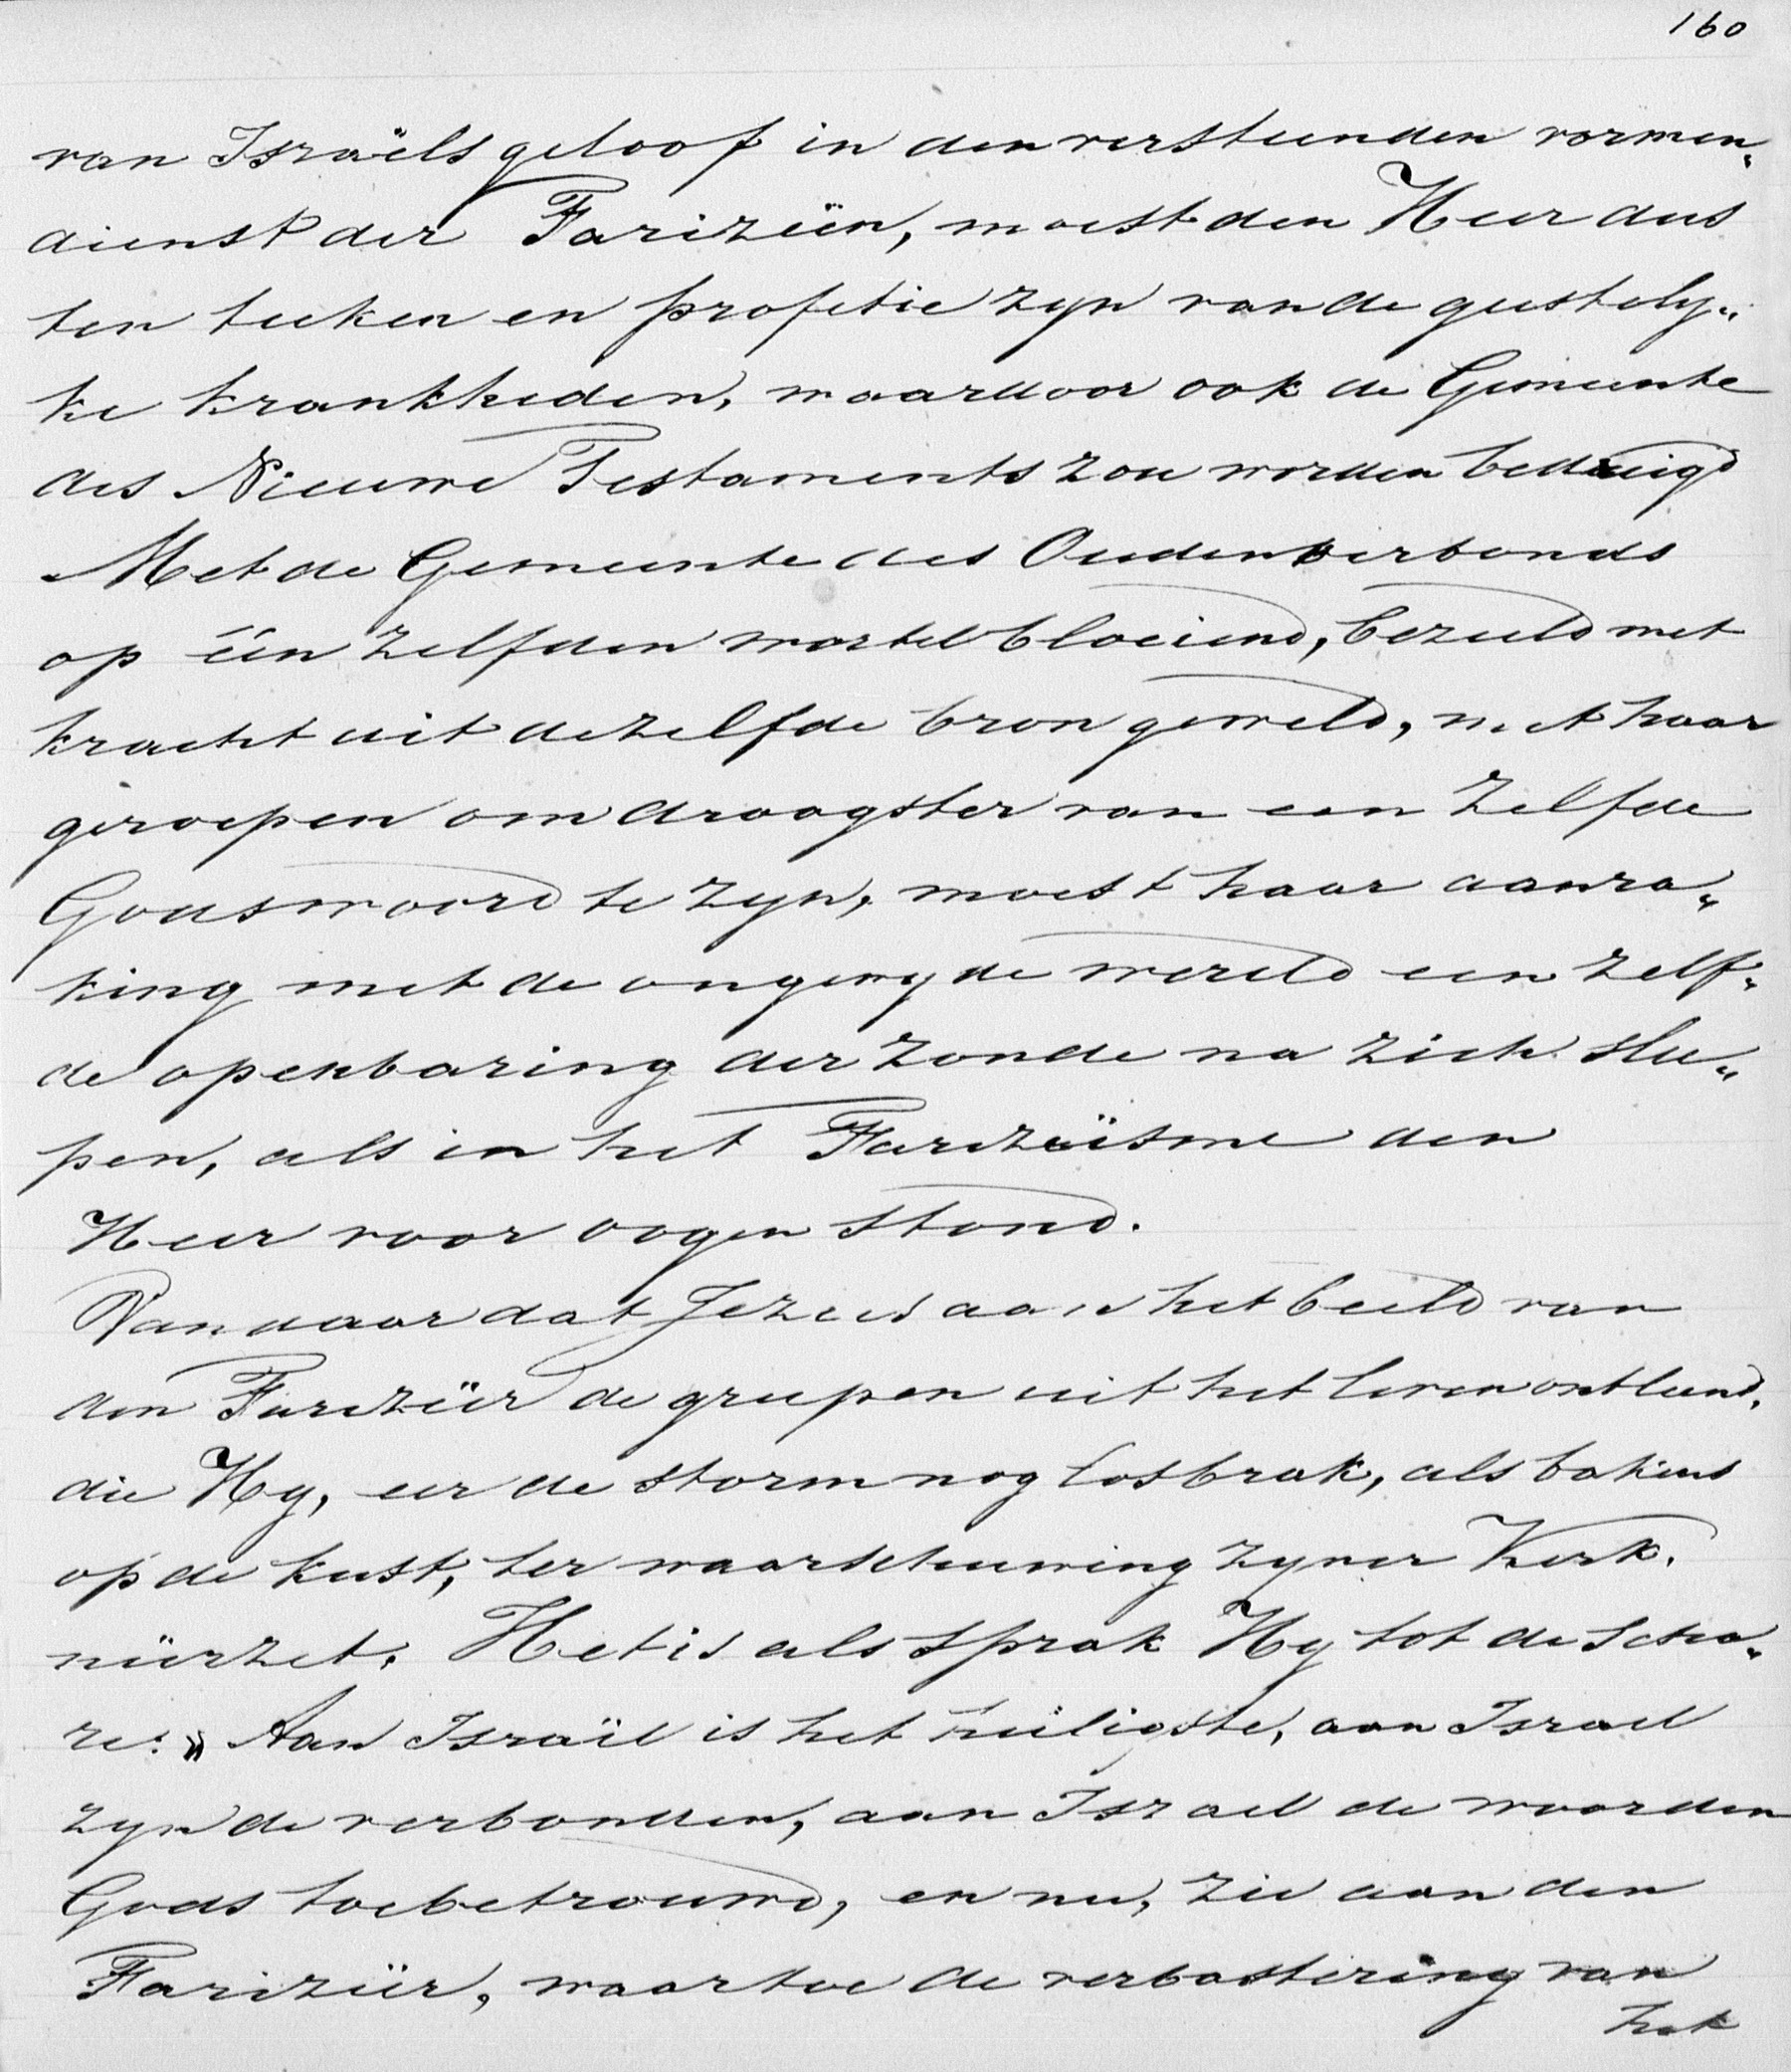 160
van Israëls geloof in den versteenden vormen„
dienst der Farizeën, moest den Heer dus
ten teeken en profetie zyn van de geestely„
ke krankheden, waardoor ook de Gemeente
des Nieuwe Testaments zou worden bedreigd
Met de Gemeente des Oudenverbonds
op één zelfden wortel bloeiend, bezield met
kracht uit dezelfde bron geweld, met haar
geroepen om draagster van een zelfde
Godswoord te zyn, moest haar aanra„
king met de ongewyde wereld een zelf„
de openbaring der zonde na zich slee„
pen, als in het Farizeïsme den
Heer voor oogen stond.
Van daar dat Jezus aan het beeld van
den Farizeër de grepen uit het leven ontleend,
die Hy, eer de storm nog losbrak, als bakens
op de kust, ter waarschuwing zyner Kerk.
neêrzet. Het is als sprak Hy tot de scha„
re: „Aan Israël is het heiligste, aan Israel
zyn de verbonden, aan Israel de woorden
Gods toebetrouwd, en nu, zie aan den
Farizeër, waartoe de verbastering van
het